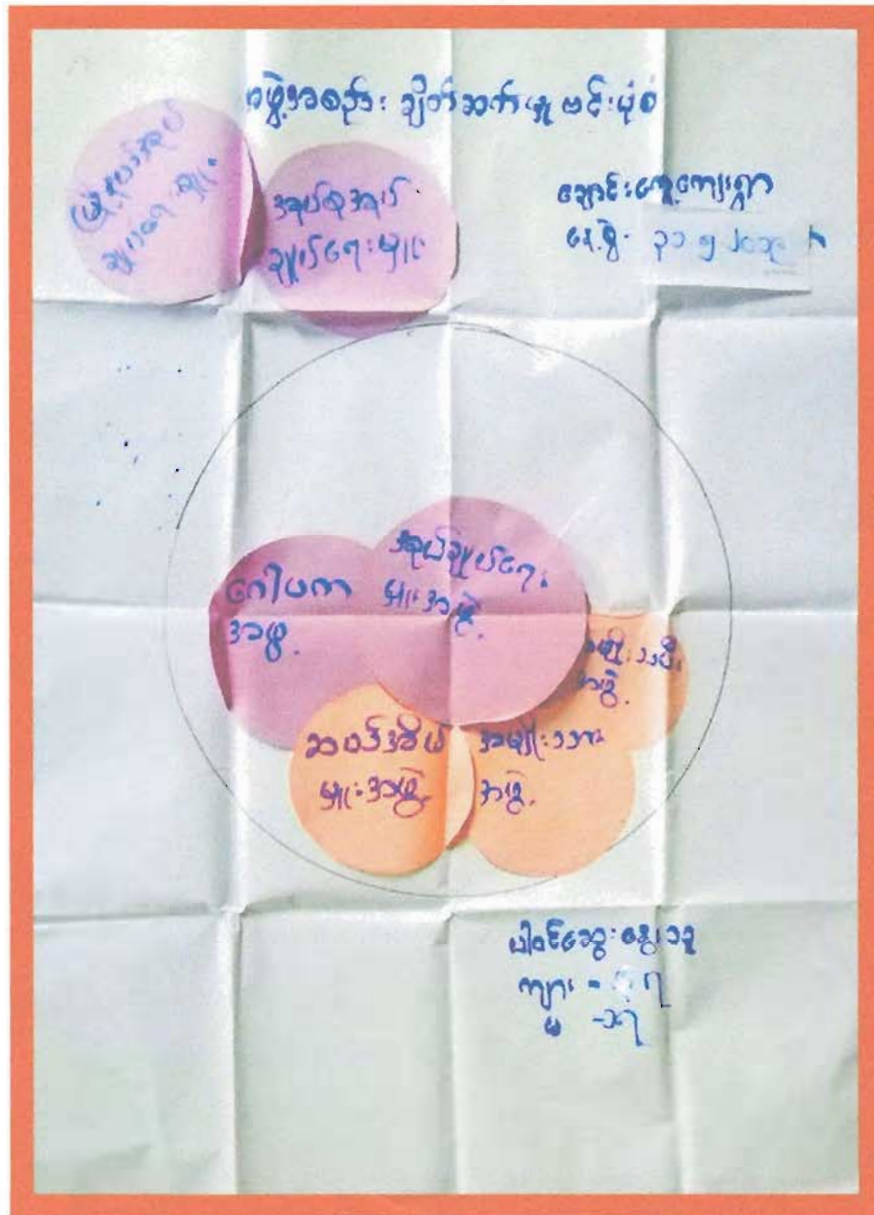 အဖွဲ့အစည်း ချိတ်ဆက်မှု ဗင်းပုံစံ
မြို့နယ်အုပ်
ချုပ်ရေးမှူး
အုပ်စုအုပ်
ချုပ်ရေးမှူး
ချောင်းကျေးရွာ
နေ့စွဲ-
အုပ်ချုပ်ရေး
မှူးအဖွဲ့
ဂေါပက
အဖွဲ့
အမျိုးသမီး
အဖွဲ့
ဆယ်အိမ်
မှူးအဖွဲ့
အမျိုးသား
အဖွဲ့
ပါဝင်ဆွေးနွေးသူ
ကျား -
မ -၁၇